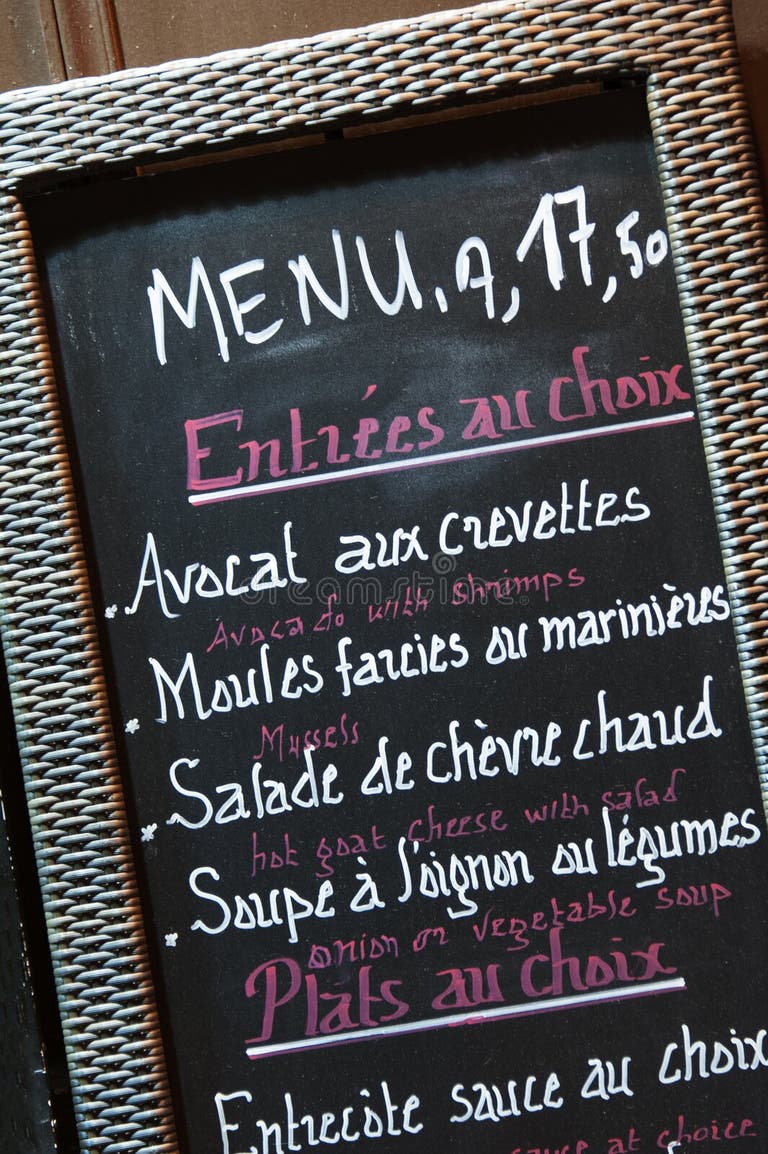 MENU. A, 17,50
Entrées au choix
* Avocat aux crevettes
Avocado with shrimps
* Moules farcies ou marinières
Mussels
* Salade de chèvre chaud
hot goat cheese with salad
* Soupe à l'oignon ou légumes
onion or vegetable soup
Plats au choix
Entrecôte sauce au choix
sauce at choice